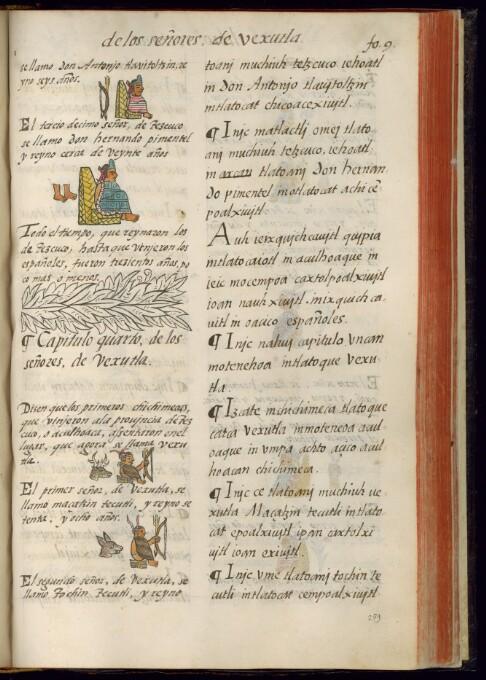 de los señores, de vexutla.
fo. 9.
se llamo Don Antonjo tlavitoltzin, re
yno seys años.
El tercio decimo señor, de tezcuco
se llamo don hernando pimentel
y reyno cerca de veynte años
Todo el tiempo, que reynaron los
de tezcuco, hasta que vinjeron los
españoles, fueron trezientos años, po
co mas o menos.
¶ Capitulo quarto, de los
señores, de vexutla.
Dizen que los primeros chichimecas,
que vinjeron a la proujncia de tez
cuco, o aculhoaca, assentaron en el
lugar, que agora se llama vexu
tla.
El primer señor, de vexutla, se
llamo maçatzin tecutli, y reyno se
tenta, y ocho años.
El segundo señor, de vexutla, se
llamo Tochin tecutli, y reyno
toanj muchiuh tetzcuco, iehoatl
in Don Antonjo tlavjtoltzin
mtlatocat chicoacexivitl.
¶ Injc matlactlj omej tlato
anj muchiuh tetzcuco, iehoatl
in axcan tlatoanj Don hernan
do pimentel motlatocat achi cẽ
poalxiujtl.
Auh iexqujchcavitl qujpia
intlatocaiotl in aculhoaque in
ieic mocempoa caxtolpoalxiujtl
ioan nauhxivitl. mixqujch ca
vitl in oacico españoles.
¶ Injc nahuj capitulo vncan
motenehoa intlatoque vexu
tla.
¶ Izcate in chichimeca tlatoque
catca vexutla inmoteneoa acul
oaque in vmpa achto acico acul
hoacan chichimeca.
¶ Injc ce tlatoanj muchiuh ve
xutla Maçatzin tecutli intlato
cat epoalxivitl ipan caxtolxi
vitl ioan exiujtl.
¶ Injc vme tlatoanj tochin te
cutli intlatocat cempoalxiujtl